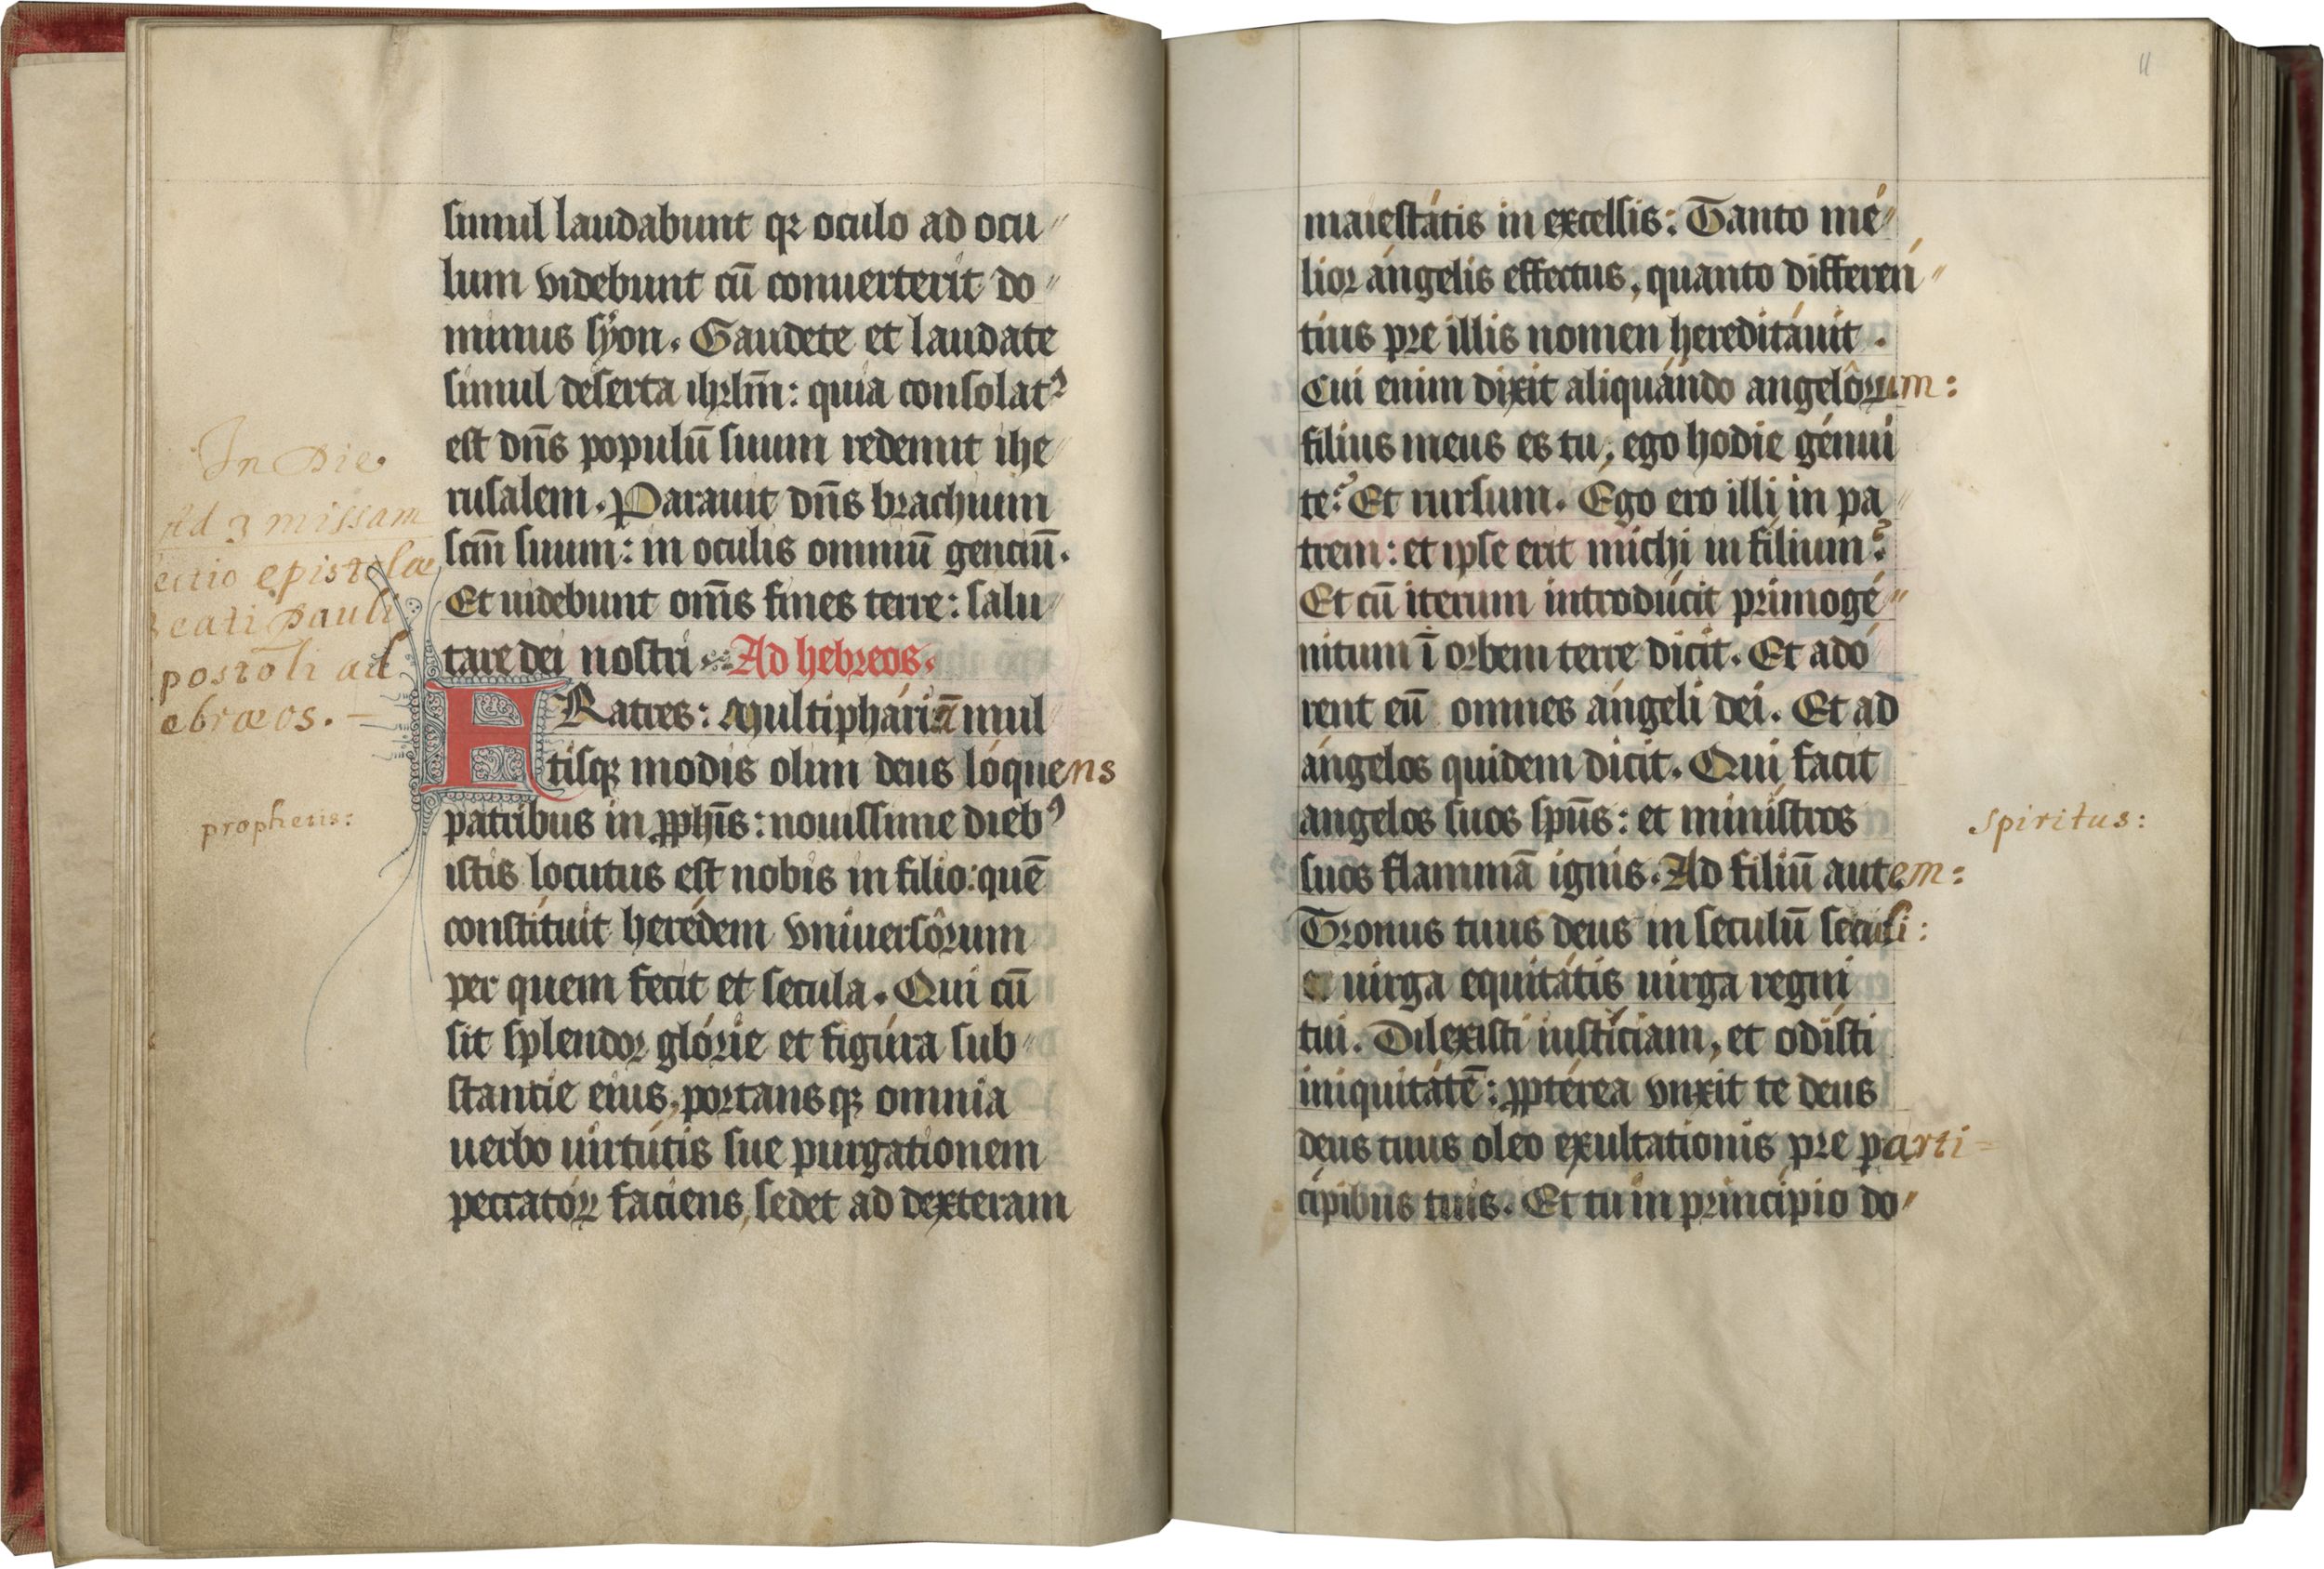 In Die
Ad 3 missam
ectio epistolæ
Beati Pauli
postoli ad
ebræos. -
prophetis:
simul laudabunt qꝛ oculo ad ocu〃
lum videbunt cū conuerterit do〃
minus syon. Gaudete et laudate
simul deserta ihrlm̄: quia consolatꝰ
est dn̄s populū suum redemit ihe〃
rusalem. Parauit dn̄s brachium
scm̄ suum: in oculis omniū genciū.
Et uidebunt om̄s fines terre: salu〃
tare dei nostri Ad hebreos.
FRatres: Multiphariā mul
tisqꝫ modis olim deus lóquens
patribus in ꝓphīs: nouissime diebꝰ
istis locutus est nobis in filio: quē
constítuit herédem vniuersôrum
per quem fecit et secula. Qui cū
sit splendor glórie et figúra sub〃
stantie eius, portansqꝫ omnia
uerbo uirtútis sue purgationem
peccatóꝝ faciens, sedet ad dexteram
11
maiestátis in excelsis: Tanto mé〃
lior ángelis effectus, quanto differén〃
tius pre illis nomen hereditáuit.
Cui enim dixit aliquándo angelôrum:
filius meus es tu, ego hodie génui
te? Et rursum. Ego ero illi in pa〃
trem: et ipse erit michi in filium?
Et cū iterum introdúcit primogé〃
nitum ī orbem terre dicit. Et adó
rent eū omnes ángeli dei. Et ad
ángelos quidem dicit. Qui facit
angelos suos sp̄us: et minístros
suos flammā ignis. Ad filiū autem:
Tronus tuus deus in seculū seculi:
et uirga equitátis uirga regni
tui. Dilexisti iustíciam, et odísti
iniquitátē: ꝓptérea vnxit te deus
deus tuus oleo exultationis pre parti=
cípibus tuis. Et tu in princípio do〃
spiritus: